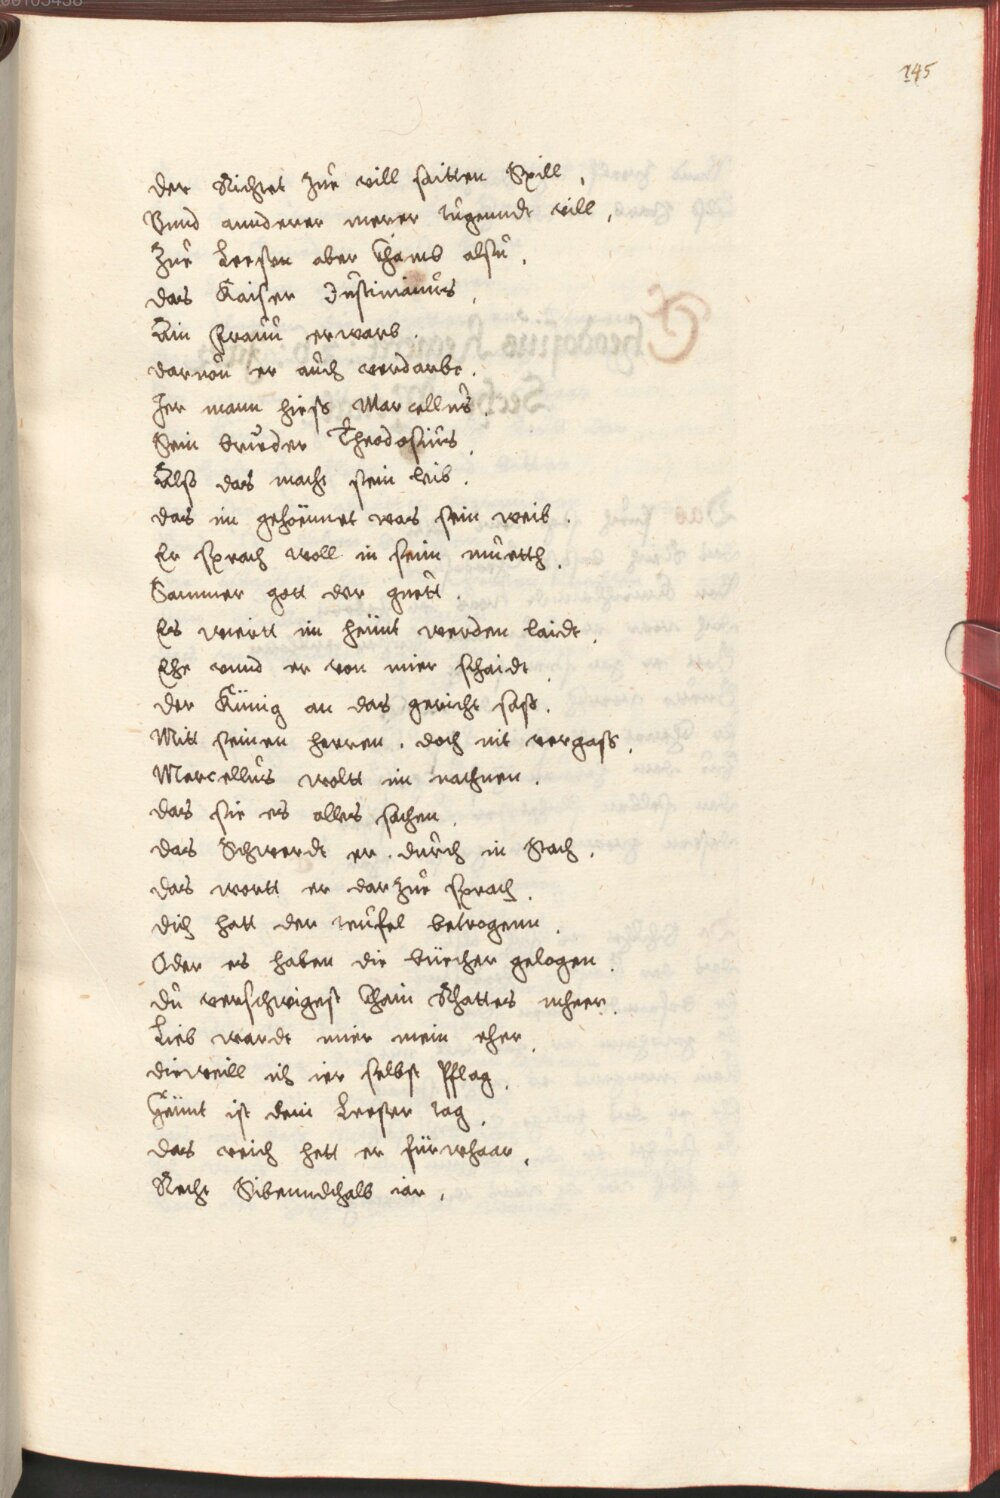 145
Der Richtet Zue vill saitten Spill,
Vnnd annderer merer tugenndt vill,
Zue Leesen aber Kham es alsu,
das Kaiser Justinianus,
Ain Frauu erwarb.
daruon er auch verdarbe.
Jer mann hiess Marcellus.
Sein brueder Theodosius.
Alss das macht sein leib.
das im gehöennet was sein weib.
Er sprach woll in seim muetth.
Sammer gott der guett.
Es wiertt im heünt werden laidt.
Ehe vnnd er von mier schaidt.
der Künig an das gericht sass.
Mitt seinen herren. doch nit vergass.
Marcellus woltt im nachnen.
das sie es alles sachen.
das Schwerdt er durch in Stach.
das wortt er darzue sprach.
dich hatt der teufel betrogenn.
Oder es haben die büecher gelogen.
du verschwigest Khain Khattes mheer.
Lieb wardt mier mein eher.
dieweill ich ier selbst Pflag.
Heünt ist dein Leester tag.
das reich hett er fürwhaar.
Recht Sibenndthalb iar.